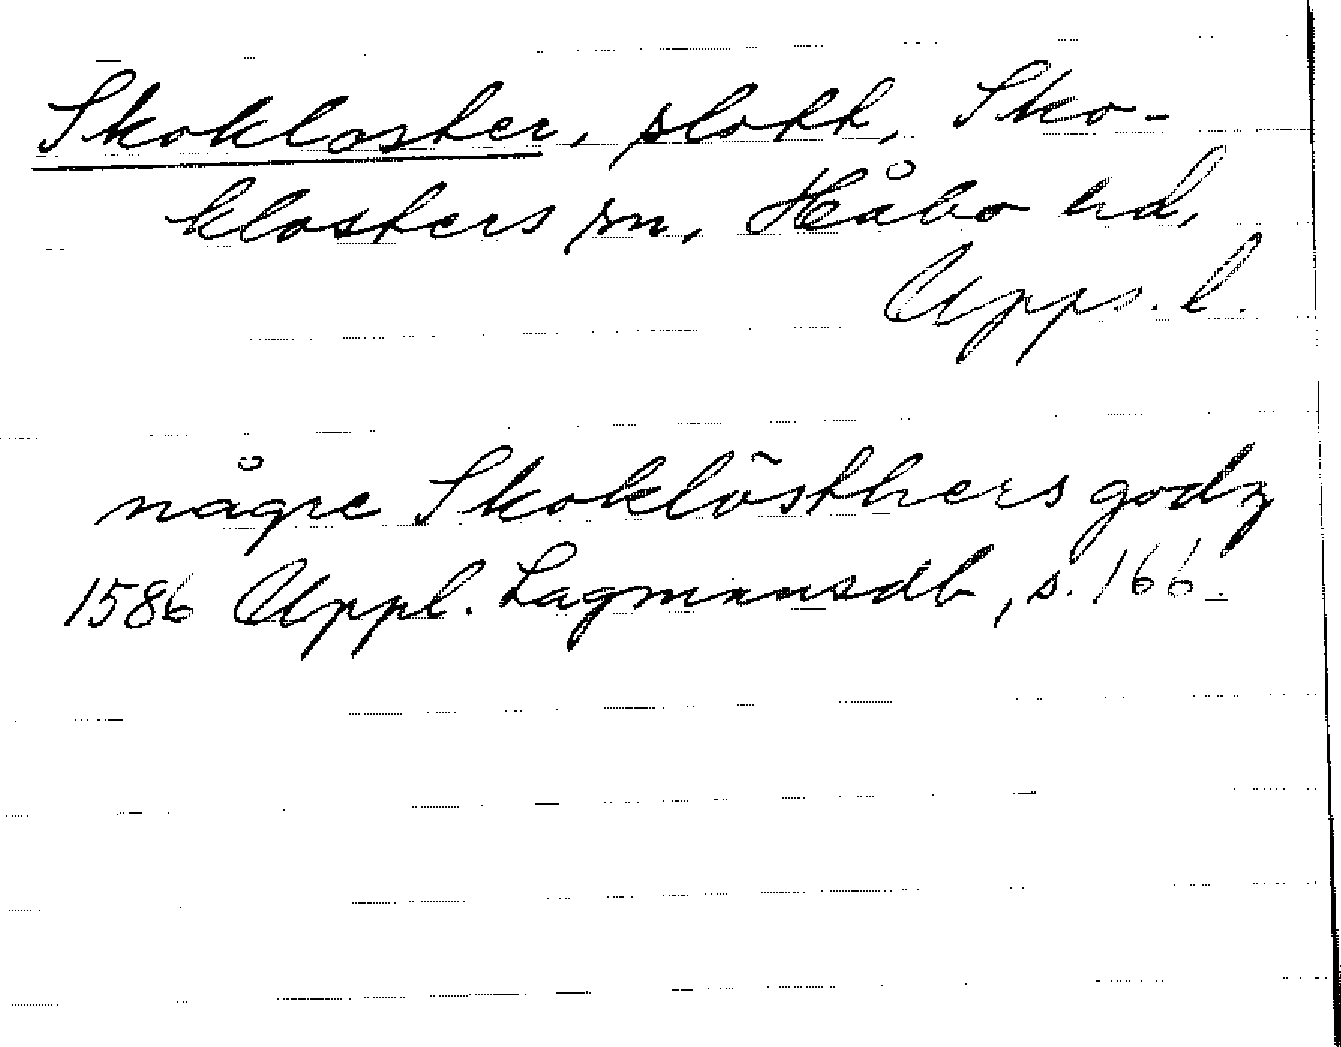 Skokloster, slott, Sko-
klosters sn, Håbo hd,
Upps. l.
någre Skoklösthers godz
1586 Uppl. Lagmansdb, s. 166.